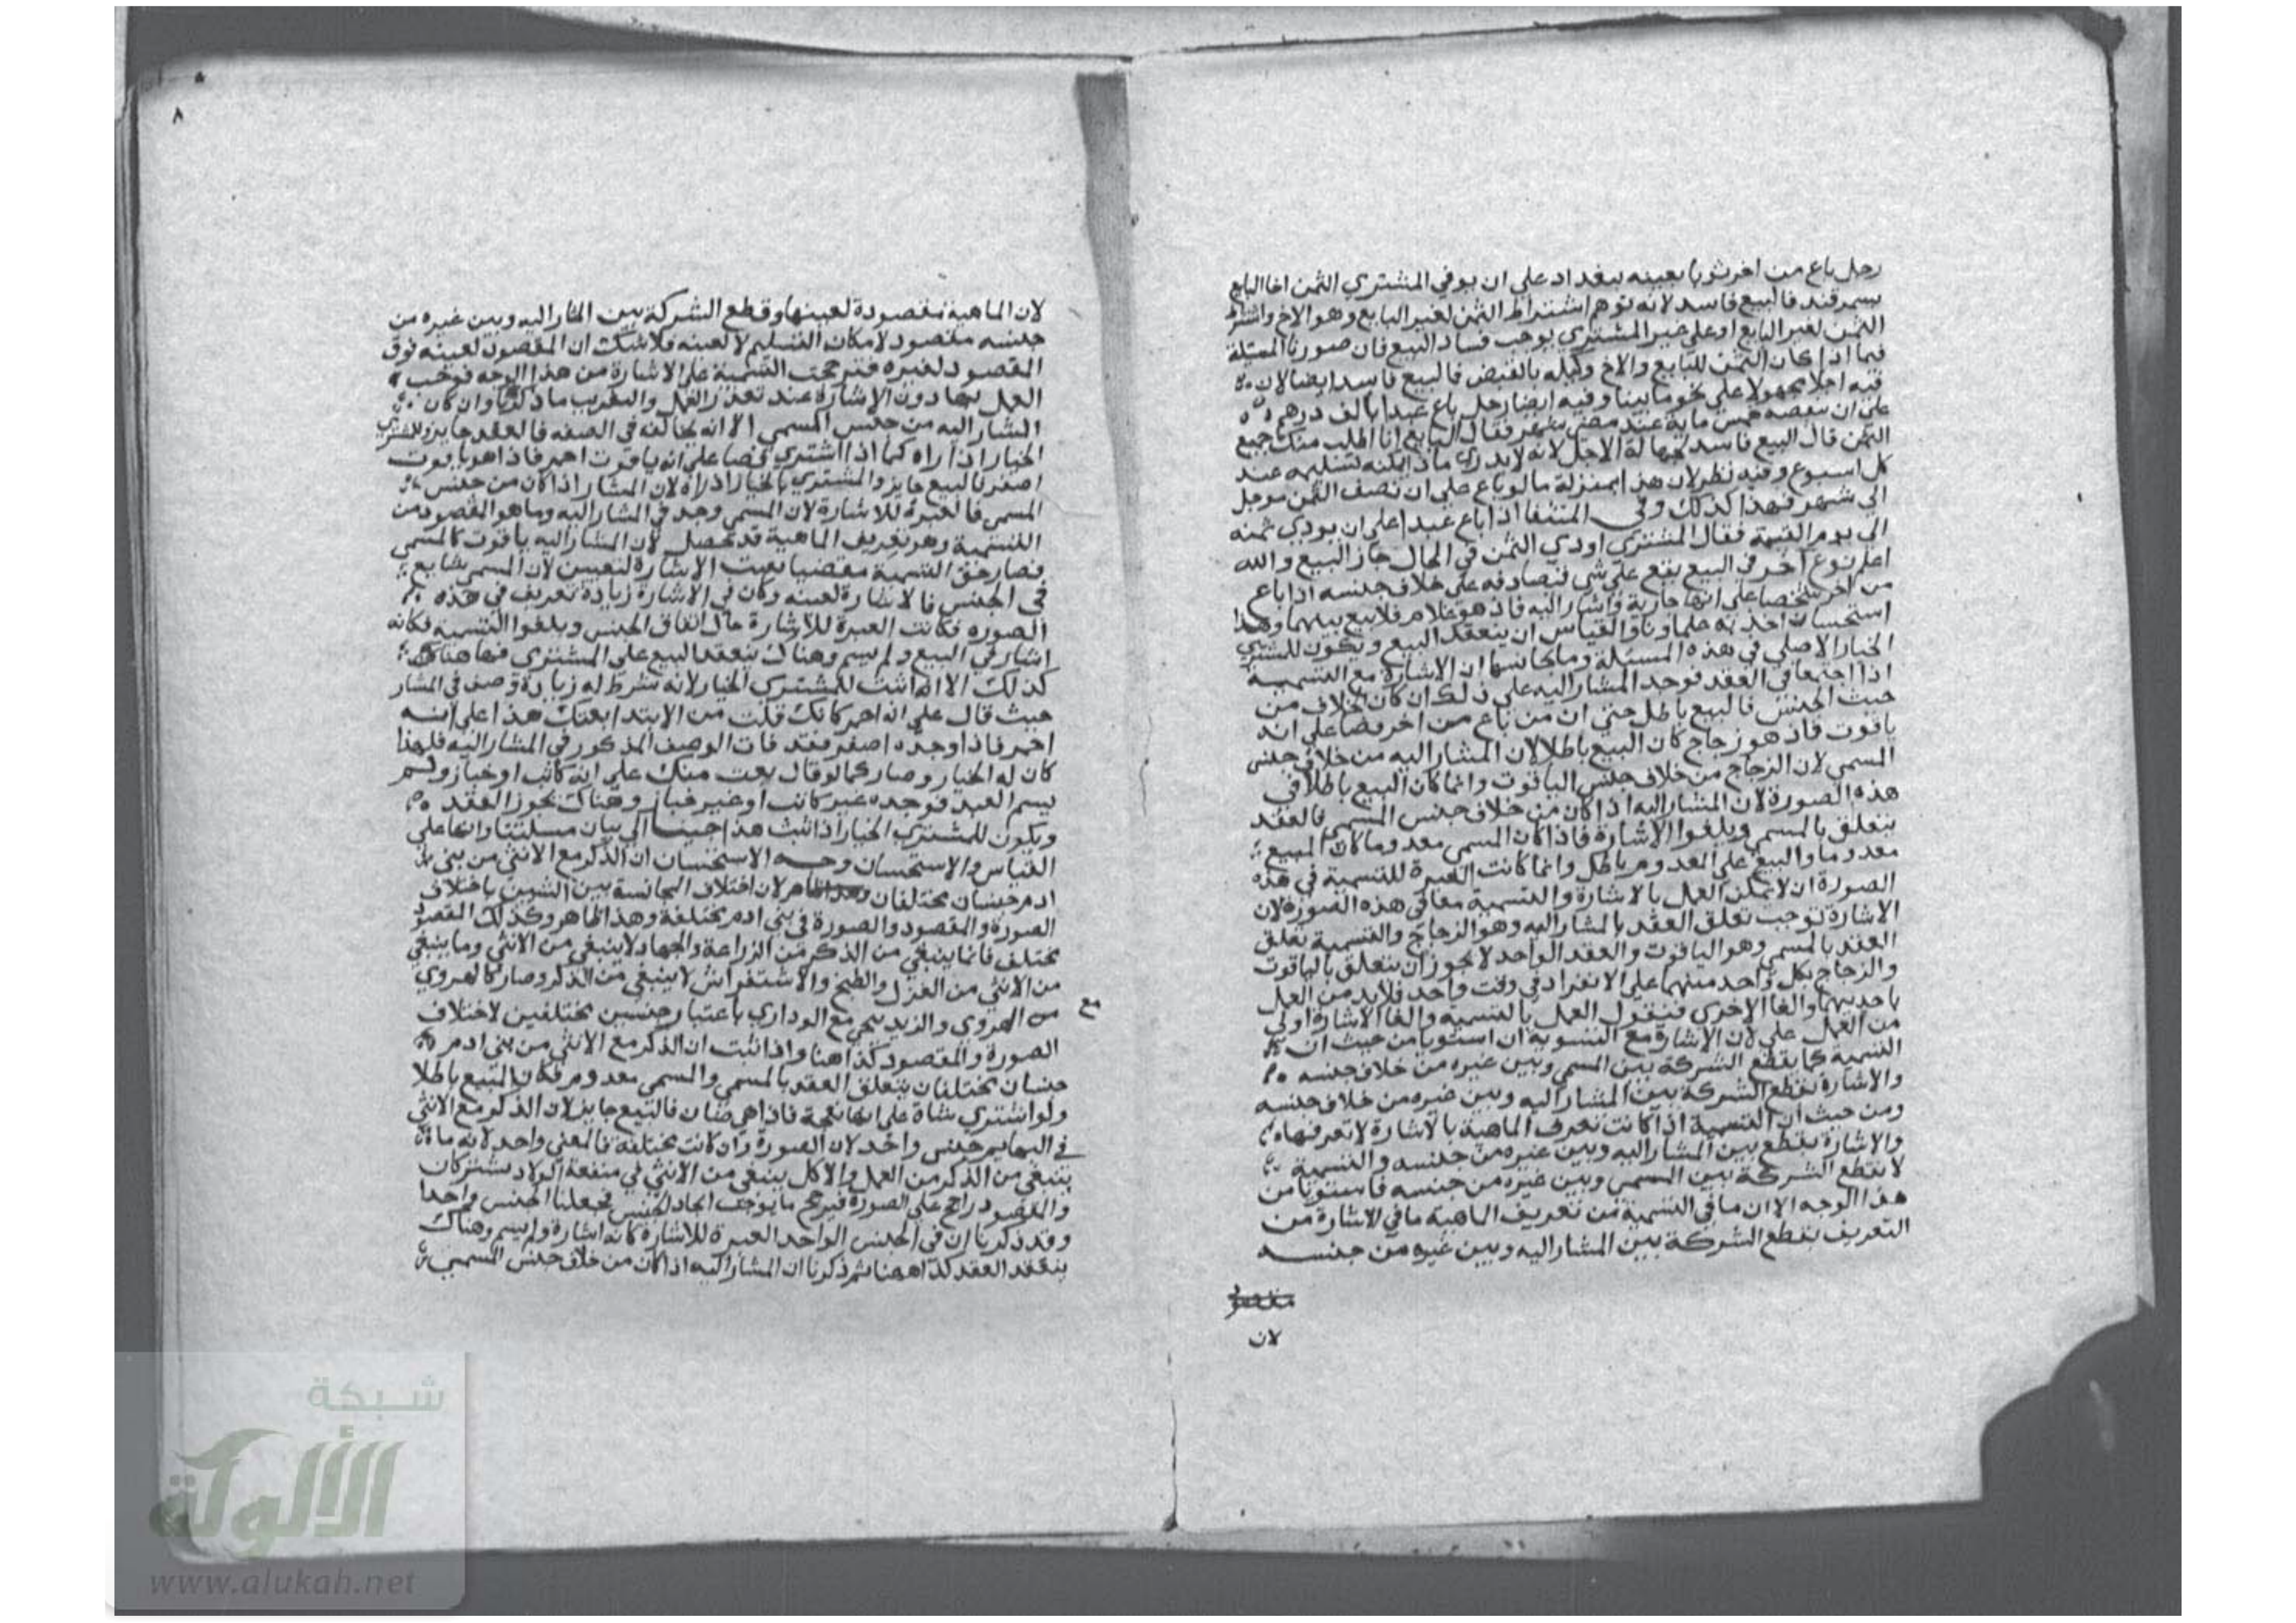 رجل باع من اخر ثوبا بعينه ببغداد علي ان يوفي المشتري الثمن اخا البايع
بسمرقند فالبيع فاسد لانه توهم اشتراط الثمن لغير البايع وهو الاخ واشتراط
الثمن لغير البايع او علي غير المشتري يوجب فساد البيع فان صورنا المسئلة
فيما اذا كان الثمن للبايع والاخ وكيله بالقبض فالبيع فاسد ايضا لان
فيه اجلا مجهولا علي نحو ما بينا وفيه ايضا رجل باع عبدا بالف درهم
علي ان ينقصه خمس ماية عند مضي شهر فقال البايع انا اطلب منك جميع
الثمن قال البيع فاسد لجهالة الاجل لانه لا يدري ماذا يمكنه تسليمه عند
كل اسبوع وفيه نظر لان هذا بمنزلة ما لو باع علي ان نصف الثمن موجل
الي شهر فهذا كذلك وفي المنتقا اذا باع عبدا علي ان يودي ثمنه
الي يوم القيمة فقال المشتري اودي الثمن في الحال جاز البيع والله
اعلم نوع اخر في البيع يقع علي شي فتصادفه علي خلاف جنسه اذا باع
من اخر شخصا علي انها جارية واشار اليه فاذا هو غلام فلا بيع بينهما وهذا
استحسان اخذ به علماونا والقياس ان ينعقد البيع ويكون للمشتري
الخيار الاصلي في هذه المسئلة وما يجانسها ان الاشارة مع التسمية
اذا اجتمعا في العقد فوجد المشار اليه علي ذلك ان كان الخلاف من
حيث الجنس فالبيع باطل حتي ان من باع من اخر فصا علي انه
ياقوت فاذ هو زجاج كان البيع باطلا لان المشار اليه من خلاف جنس
المسمي لان الزجاج من خلاف جنس الياقوت وانما كان البيع باطلا في
هذه الصورة لان المشار اليه اذا كان من خلاف جنس المسمي فالعقد
يتعلق بالمسمي ويلغوا الاشارة فاذا كان المسمي معدوما كان المبيع
معدوما والبيع علي المعدوم باطل وانما كانت العبرة للتسمية في هذه
الصورة ان لا يمكن العمل بالاشارة والتسمية معا في هذه الصورة لان
الاشارة توجب تعلق العقد بالمشار اليه وهو الزجاج والتسمية تعلق
العقد بالمسمي وهو الياقوت والعقد الواحد لا يجوز ان يتعلق بالياقوت
والزجاج بكل واحد منهما علي الانفراد في وقت واحد فلا بد من العمل
باحديهما والغا الاخري فنقول العمل بالتسمية والغا الاشارة اولي
من العمل علي لان الاشارة مع التسوية ان استويا من حيث ان
التسمية كما يقطع الشركة بين المسمي وبين غيره من خلاف جنسه
والاشارة تقطع الشركة بين المشار اليه وبين غيره من خلاف جنسه
ومن حيث ان التسمية اذا كانت تعرف الماهية بالاشارة لا تعرفها
والاشارة يقطع بين المشار اليه وبين غيره من جنسه والتسمية
لا تقطع الشركة بين المسمي وبين غيره من جنسه فاستويا من
هذا الوجه الا ان ما في التسمية من تعريف الماهية ما في الاشارة من
التعريف يقطع الشركة بين المشار اليه وبين غيره من جنسه
مقصود
لان
٨
لان الماهية مقصودة لعينها وقطع الشركة بين المشار اليه وبين غيره من
جنسه مقصود لامكان التسليم لا لعينه ولا شك ان المقصود لعينه فوق
المقصود لغيره فترجحت التسمية علي الاشارة من هذا الوجه فوجب
العمل بها دون الاشارة عند تعذر العمل والتقريب ما ذكرنا وان كان
المشار اليه من جنس المسمي الا انه يخالفه في الصفه فالعقد جايز وللمشتري
الخيار اذا راه كما اذا اشتري فصا علي انه ياقوت احمر فاذا هو ياقوت
اصفر فالبيع جايز والمشتري بالخيار اذا راه لان المشار اذا كان من جنس
المسمي فالعبرة للاشارة لان المسمي وجد في المشار اليه وما هو المقصود من
التسمية وهو تعريف الماهية قد تحصل لان المشار اليه ياقوت كالمسمي
فصار حق التسمية مقضيا بقيت الاشارة لتعيين لان المسمي شايع
في الجنس فالاشارة لعينه وكان في الاشارة زيادة تعريف في هذه
الصوره فكانت العبرة للاشارة حال اتفاق الجنس ويلغوا التسمية فكانه
اشار في البيع ولم يسم وهناك ينعقد البيع علي المشتري فها هنا
كذلك الا انه اثبت للمشتري الخيار لانه شرط له زيادة وصف في المشار
حيث قال علي انه احمر كانك قلت من الابتدا بعتك هذا علي انه
احمر فاذا وجده اصفر فقد فات الوصف المذكور في المشار اليه فلهذا
كان له الخيار وصار كما لو قال بعت منك علي انه كاتب او خباز ولم
يسم العبد فوجده غير كاتب او غير خباز وهناك يجوز العقد
ويكون للمشتري الخيار اذا ثبت هذا جينا الي بيان مسئلتنا وانها علي
القياس والاستحسان وجه الاستحسان ان الذكر مع الانثي من بني
ادم جنسان مختلفان وهذا ظاهر لان اختلاف المجانسة بين الشيين باختلاف
الصورة والمقصود والصورة في بني ادم مختلفة وهذا ظاهر وكذلك المقصود
مختلف فانما ينبغي من الذكر من الزراعة والجهاد لا ينبغي من الانثي وما ينبغي
من الانثي من الغزل والطبخ والاستفراش لا ينبغي من الذكر وصار كالهروي
مع
من المروي والزنديجي مع الوداري باعتبار جنسين مختلفين لاختلاف
الصورة والمقصود كذا هنا واذا ثبت ان الذكر مع الانثي من بني ادم
جنسان مختلفان يتعلق العقد بالمسمي والمسمي معدوم فكان البيع باطلا
ولو اشتري شاة علي انها نعجة فاذا هي ضان فالبيع جايز لان الذكر مع الانثي
في البهايم جنس واحد لان الصورة وان كانت مختلفة فالمعني واحد لانه ما
ينبغي من الذكر من العمل والاكل ينبغي من الانثي في منفعة الولاد يشتركان
والمقصود راجح علي الصورة فيرجح ما يوجب اتحاد الجنس فجعلنا الجنس واحدا
وقد ذكرنا ان في الجنس الواحد العبرة للاشارة كانه اشارة ولم يسم وهناك
ينعقد العقد كذا ههنا ثم ذكرنا ان المشار اليه اذا كان من خلاف جنس المسمي
شبكة
الألوكة
www.alukah.net